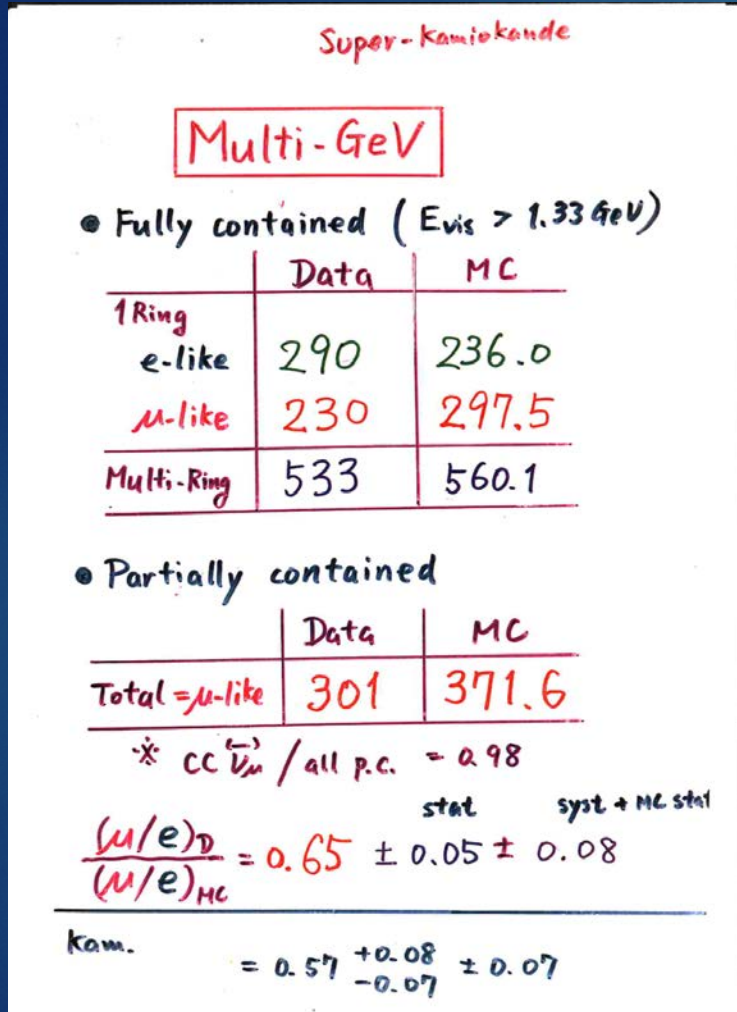 Super-Kamiokande
Multi-GeV
• Fully contained (Evis > 1.33 GeV)
Data MC
1 Ring
e-like 290 236.0
μ-like 230 297.5
Multi-Ring 533 560.1
• Partially contained
Data MC
Total = μ-like 301 371.6
※ CC ν̄μ^(-) / all p.c. = 0.98
stat syst + MC stat
(μ/e)D / (μ/e)MC = 0.65 ± 0.05 ± 0.08
Kam. = 0.57 +0.08 -0.07 ± 0.07